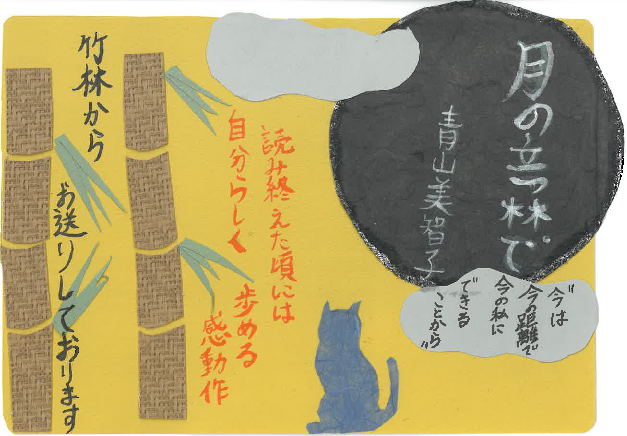 月の立林で
青山美智子
“今は
今の距離で
今の私に
できる
ことから”
読み終えた頃には
自分らしく 歩める
感動作
竹林から
お送りしております